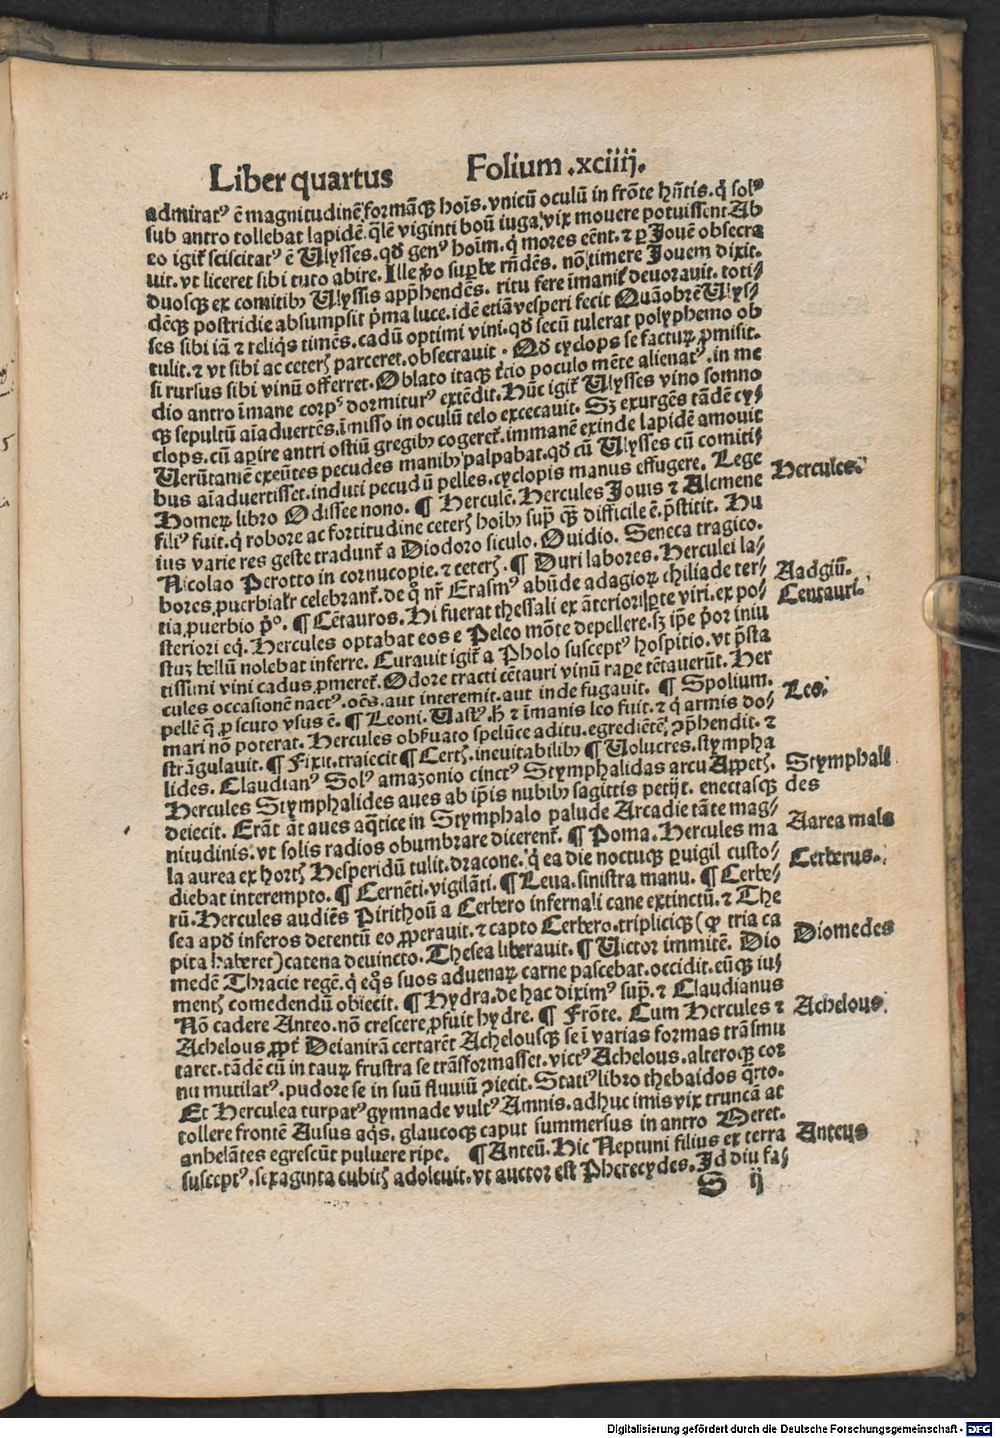 Liber quartus Folium .xciiij.
admirat⁹ ē magnitudinē formāqȝ hoīs. vnicū oculū in frōte hñtis. q̇ sol⁹
sub antro tollebat lapidē. qlē viginti boū iuga vix mouere potuissent Ab
eo igit̃ sciscitat⁹ ē Ulysses. qđ gen⁹ hoīm. q̇ mores eēnt. ⁊ ꝑ Jouē obsecra
uit. vt liceret sibi tuto abire. Ille ꝟo supbe rñdēs. nō timere Jouem dixit.
duosqȝ ex comitibꝰ Ulyssis apphendēs. ritu fere īmanis deuorauit. toti⸗
dēqȝ postridie absumpsit pma luce. idē etiā vesperi fecit Quāobrē Ulys⸗
ses sibi iā ⁊ reliqs timēs. cadū optimi vini. qđ secū tulerat polyphemo ob
tulit. ⁊ vt sibi ac ceterꝭ parceret. obsecrauit. Qđ cyclops se facturꝝ ꝓmisit.
si rursus sibi vinū offerret. Oblato itaqȝ tcio poculo mēte alienat⁹. in me
dio antro īmane corp⁹ dormitur⁹ extēdit. Hūc igit̃ Ulysses vino somno
qȝ sepultū aīaduertēs. īmisso in oculū telo excecauit. Sȝ exurgēs tādē cy⸗
clops. cū aꝑire antri ostiū gregibꝰ cogeret̃. immanē exinde lapidē amouit
Uerūtamē exeūtes pecudes manibꝰ palpabat. qđ cū Ulysses cū comiti⸗
bus aīaduertisset. induti pecudū pelles. cyclopis manus effugere. Lege
Homerꝝ libro Odissee nono. ¶ Herculē. Hercules Jouis ⁊ Alcmene
fili⁹ fuit. q̇ robore ac fortitudine ceterꝭ hoibꝰ sup qȝ difficile ē. pstitit. Hu
ius varie res geste tradunt̃ a Diodoro siculo. Ouidio. Seneca tragico.
Nicolao Perotto in cornucopie. ⁊ ceterꝭ. ¶ Duri labores. Herculei la⸗
bores. ꝓuerbialr̃ celebrant̃. de q̇ nr̃ Erasm⁹ abūde adagioꝝ chiliade ter⸗
tia ꝓuerbio p⁰. ¶ Cētauros. Hi fuerat thessali ex āteriori pte viri. ex po⸗
steriori eq̇. Hercules optabat eos e Peleo mōte depellere. sȝ ipe por iniu
stuȝ bellū nolebat inferre. Curauit igit̃ a Pholo suscept⁹ hospitio. vt psta
tissimi vini cadus ꝓmeret̃. Odore tracti cētauri vinū raꝑe tētauerūt. Her
cules occasionē nact⁹. oēs. aut interemit. aut inde fugauit. ¶ Spolium.
pellē q̇ ꝓ scuto vsus ē. ¶ Leoni. Uast⁹. ꝧ ⁊ īmanis leo fuit. ⁊ q̇ armis do⸗
mari nō poterat. Hercules obseruato spelūce aditu. egrediētē ꝯphendit. ⁊
strāgulauit. ¶ Fixit. traiecit ¶ Certꝭ. ineuitabilibꝰ ¶ Uolucres. stympha
lides. Claudian⁹ Sol⁹ amazonio cinct⁹ Stymphalidas arcu Appetꝭ.
Hercules Stymphalides aues ab ipis nubibꝰ sagittis petijt. enectasqȝ
deiecit. Erāt āt aues aqtice in Stymphalo palude Arcadie tāte mag⸗
nitudinis. vt solis radios obumbrare dicerent̃. ¶ Poma. Hercules ma
la aurea ex hortꝭ Hesperidū tulit. dracone. q̇ ea die noctuqȝ ꝑuigil custo⸗
diebat interempto. ¶ Cernēti. vigilāti. ¶ Leua. sinistra manu. ¶ Cerbe⸗
rū. Hercules audiēs Pirithoū a Cerbero infernali cane extinctū. ⁊ The
sea apđ inferos detentū eo ꝓperauit. ⁊ capto Cerbero. tripliciqȝ (ꝙ tria ca
pita haberet) catena deuincto. Thesea liberauit. ¶ Uictor immitē. Dio
medē Thracie regē. q̇ eqs suos aduenarꝝ carne pascebat. occidit. eūqȝ iu⸗
mentꝭ comedendū obiecit. ¶ Hydra. de hac dixim⁹ sup. ⁊ Claudianus
Nō cadere Anteo. nō crescere ꝓfuit hydre. ¶ Frōte. Cum Hercules ⁊
Achelous ꝓpt Deianirā certarēt Achelousqȝ se ī varias formas trāsmu
taret. tādē cū in taurꝝ frustra se trāsformasset. vict⁹ Achelous. alteroqȝ cor
nu mutilat⁹. pudore se in suū fluuiū ꝯiecit. Stati⁹ libro thebaidos qrto.
Et Herculea turpat⁹ gymnade vult⁹ Amnis. adhuc imis vix truncā at
tollere frontē Ausus aqs. glaucoqȝ caput summersus in antro Meret.
anhelātes egrescūt puluere ripe. ¶ Anteū. Hic Neptuni filius ex terra
suscept⁹. sexaginta cubitꝭ adoleuit. vt auctor est Pherecydes. Id diu fa⸗
S ij
Hercules.
Aadgiū.
Centauri.
Leo.
Stymphali
des
Aarea mala
Cerberus.
Diomedes
Achelous.
Anteus
Digitalisierung gefördert durch die Deutsche Forschungsgemeinschaft - DFG